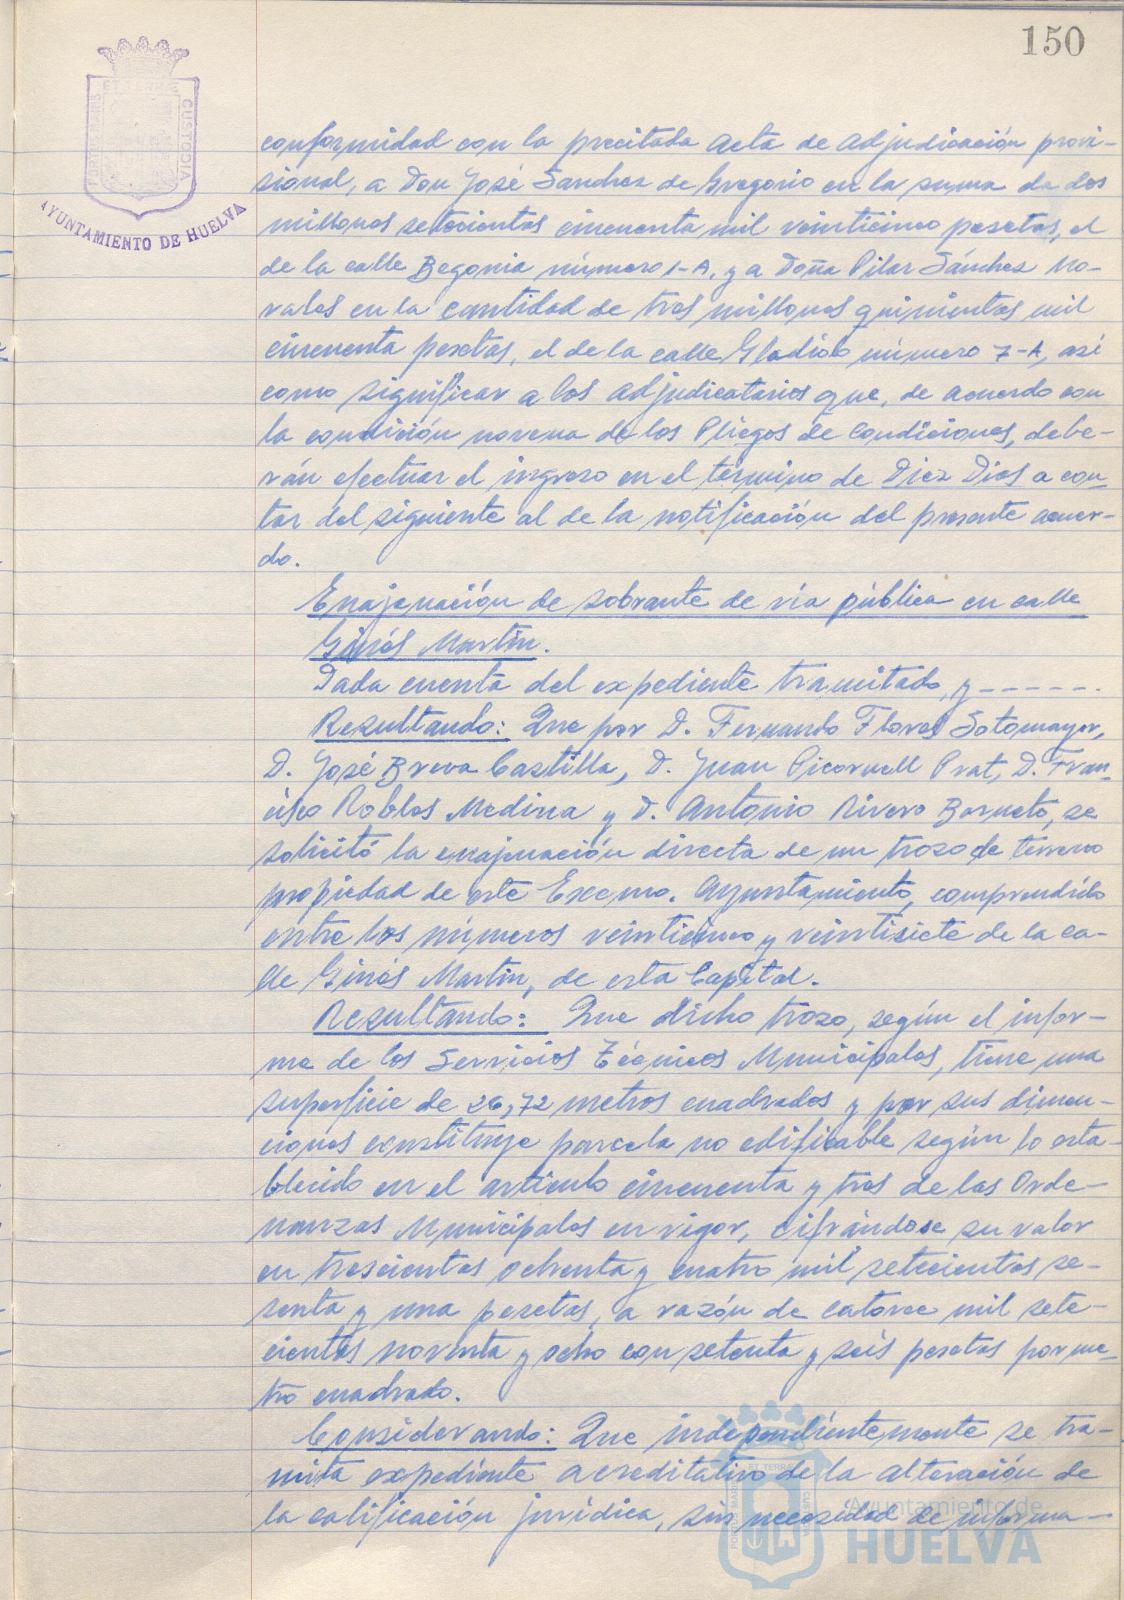 150
PORTUS MARIS ET TERRAE CUSTODIA
AYUNTAMIENTO DE HUELVA
conformidad con la precitada Acta de Adjudicación provi-
sional, a Don José Sanchez de Gregorio en la suma de dos
millones setecientas cincuenta mil veinticinco pesetas, el
de la calle Begonia número 1-A, y a Doña Pilar Sánchez No-
vales en la cantidad de tres millones quinientas mil
cincuenta pesetas, el de la calle Gladiolo número 7-A, así
como significar a los adjudicatarios que, de acuerdo con
la condición novena de los Pliegos de Condiciones, debe-
rán efectuar el ingreso en el término de Diez Dias a con-
tar del siguiente al de la notificación del presente acuer-
do.
Enajenación de sobrante de vía pública en calle
Ginés Martín.
Dada cuenta del expediente tramitado, y ------
Resultando: Que por D. Fernando Flores Sotomayor,
D. José Breva Castilla, D. Juan Picornell Prat, D. Fran-
cisco Robles Medina y D. Antonio Rivero Barneto, se
solicitó la enajenación directa de un trozo de terreno
propiedad de este Excmo. Ayuntamiento, comprendido
entre los números veinticinco y veintisiete de la ca-
lle Ginés Martín, de esta Capital.
Resultando: Que dicho trozo, según el infor-
me de los Servicios Técnicos Municipales, tiene una
superficie de 26,72 metros cuadrados y por sus dimen-
ciones constituye parcela no edificable según lo esta-
blecido en el artículo cincuenta y tres de las Orde-
nanzas Municipales en vigor, cifrándose su valor
en trescientas ochenta y cuatro mil setecientas se-
senta y una pesetas, a razón de catorce mil sete-
cientas noventa y ocho con setenta y seis pesetas por me-
tro cuadrado.
Considerando: Que independientemente se tra-
mita expediente acreditativo de la alteración de
la calificación jurídica, sin necesidad de informa-
Ayuntamiento de
HUELVA